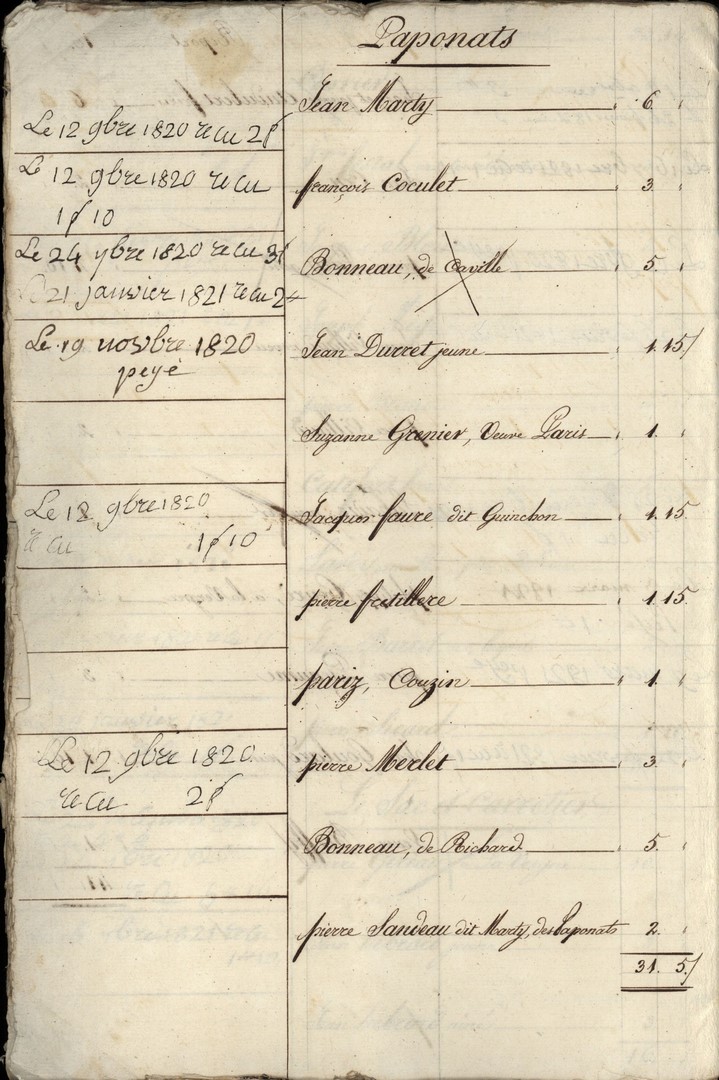 Paponats
Le 12 9bre 1820 recu 2f
Jean Marty 6. "
Le 12 9bre 1820 recu
1f 10
françois Coculet 3 "
Le 24 9bre 1820 recu 3f
21 janvier 1821 recu 2f
Bonneau, de Caville 5. "
Le 19 novbre 1820
peyé
Jean Durret jeune 1. 15/
Suzanne Grenier, Veuve Paris 1. "
Le 12 9bre 1820
recu 1f 10
Jacques faure dit Guinchon 1. 15.
pierre fretillere 1. 15.
pariz, Couzin 1. "
Le 12 9bre 1820
recu 2f
pierre Merlet 3. "
Bonneau, de Richard 5. "
pierre Sandeau dit Marty, des Paponats 2. "
31. 5/